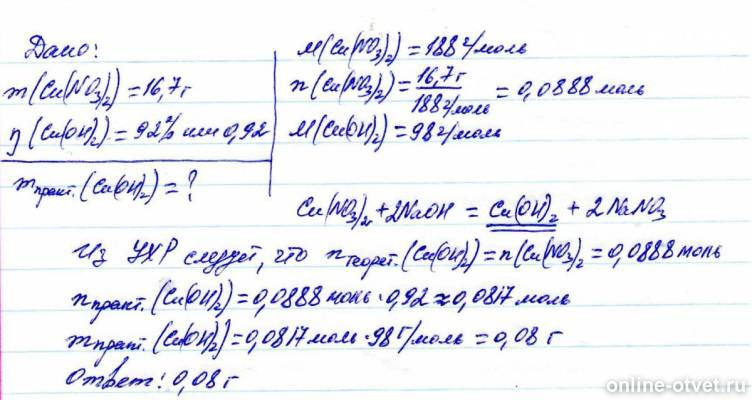 Дано:
m(Cu(NO₃)₂) = 16,7г
η(Cu(OH)₂) = 92% или 0,92
mпракт.(Cu(OH)₂) = ?
M(Cu(NO₃)₂) = 188г/моль
n(Cu(NO₃)₂) = 16,7г / 188г/моль = 0,0888 моль
M(Cu(OH)₂) = 98г/моль
Cu(NO₃)₂ + 2NaOH = Cu(OH)₂ + 2NaNO₃
Из УХР следует, что nтеорет.(Cu(OH)₂) = n(Cu(NO₃)₂ = 0,0888 моль
nпракт.(Cu(OH)₂) = 0,0888 моль · 0,92 ≈ 0,0817 моль
mпракт.(Cu(OH)₂) = 0,0817 моль · 98 г/моль = 0,08 г
Ответ: 0,08 г
online-otvet.ru